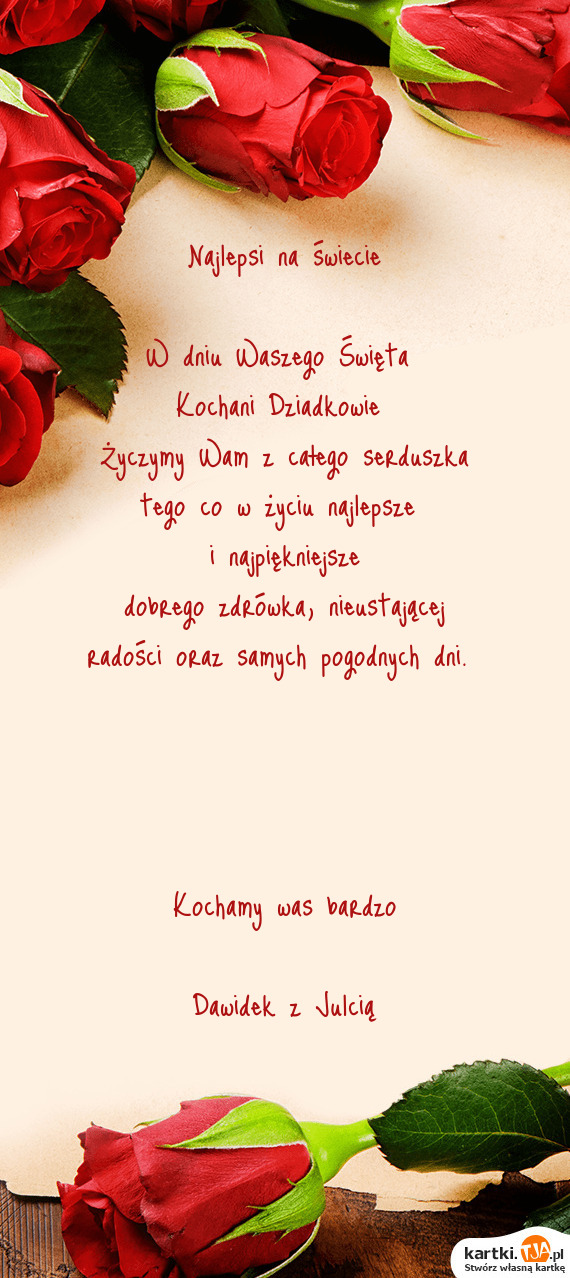 Najlepsi na świecie
W dniu Waszego Święta
Kochani Dziadkowie
Życzymy Wam z całego serduszka
tego co w życiu najlepsze
i najpiękniejsze
dobrego zdrówka, nieustającej
radości oraz samych pogodnych dni.
Kochamy was bardzo
Dawidek z Julcią
kartki.TJA.pl
Stwórz własną kartkę